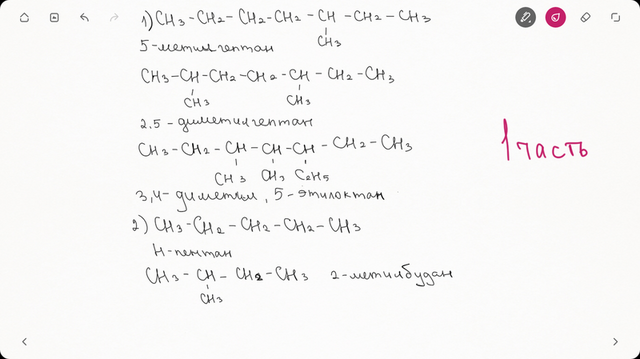 1) CH3 - CH2 - CH2 - CH2 - CH - CH2 - CH3
CH3
5-метилгептан
CH3 - CH - CH2 - CH2 - CH - CH2 - CH3
CH3 CH3
2.5 - диметилгептан
CH3 - CH2 - CH - CH - CH - CH2 - CH3
CH3 CH3 C2H5
3,4- диметил, 5 - этилоктан
1 часть
2) CH3 - CH2 - CH2 - CH2 - CH3
Н-пентан
CH3 - CH - CH2 - CH3 2-метилбудан
CH3